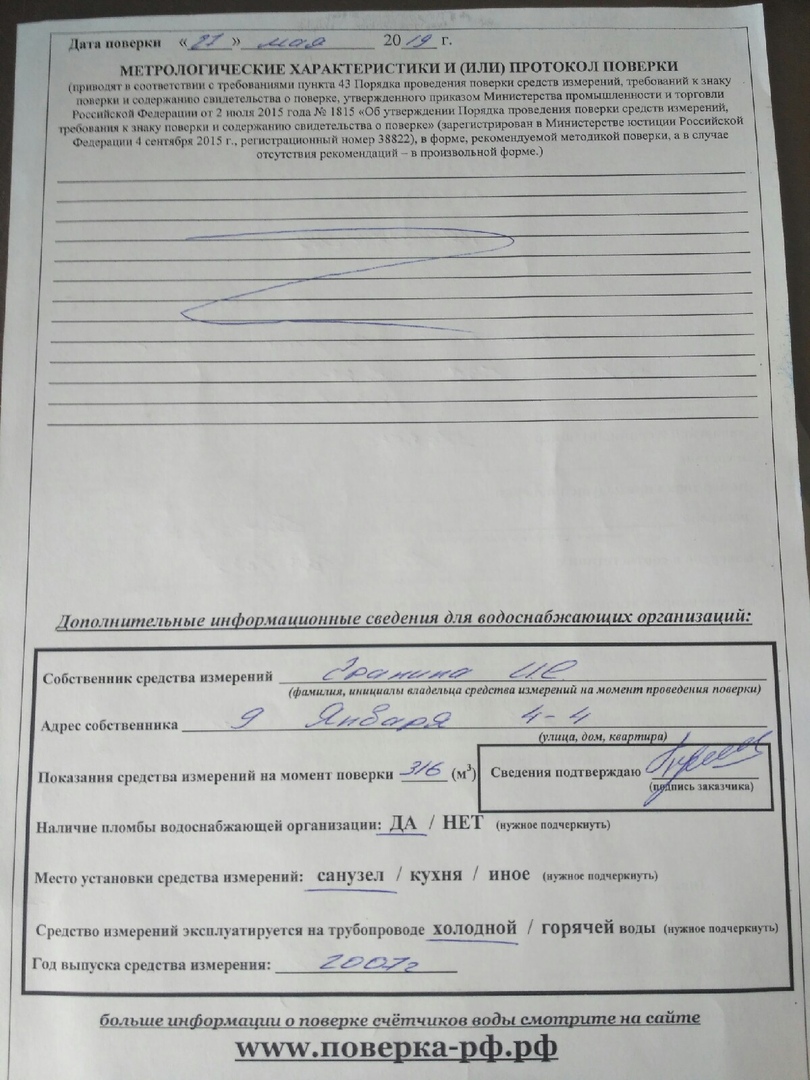 Дата поверки «27» мая 2019 г.
МЕТРОЛОГИЧЕСКИЕ ХАРАКТЕРИСТИКИ И (ИЛИ) ПРОТОКОЛ ПОВЕРКИ
(приводят в соответствии с требованиями пункта 43 Порядка проведения поверки средств измерений, требований к знаку
поверки и содержанию свидетельства о поверке, утвержденного приказом Министерства промышленности и торговли
Российской Федерации от 2 июля 2015 года № 1815 «Об утверждении Порядка проведения поверки средств измерений,
требования к знаку поверки и содержанию свидетельства о поверке» (зарегистрирован в Министерстве юстиции Российской
Федерации 4 сентября 2015 г., регистрационный номер 38822), в форме, рекомендуемой методикой поверки, а в случае
отсутствия рекомендаций – в произвольной форме.)
Дополнительные информационные сведения для водоснабжающих организаций:
Собственник средства измерений
(фамилия, инициалы владельца средства измерений на момент проведения поверки)
Адрес собственника 9 Января 4-4
(улица, дом, квартира)
Показания средства измерений на момент поверки 316 (м³) Сведения подтверждаю
(подпись заказчика)
Наличие пломбы водоснабжающей организации: ДА / НЕТ (нужное подчеркнуть)
Место установки средства измерений: санузел / кухня / иное (нужное подчеркнуть)
Средство измерений эксплуатируется на трубопроводе холодной / горячей воды (нужное подчеркнуть)
Год выпуска средства измерения: 2007г
больше информации о поверке счётчиков воды смотрите на сайте
www.поверка-рф.рф